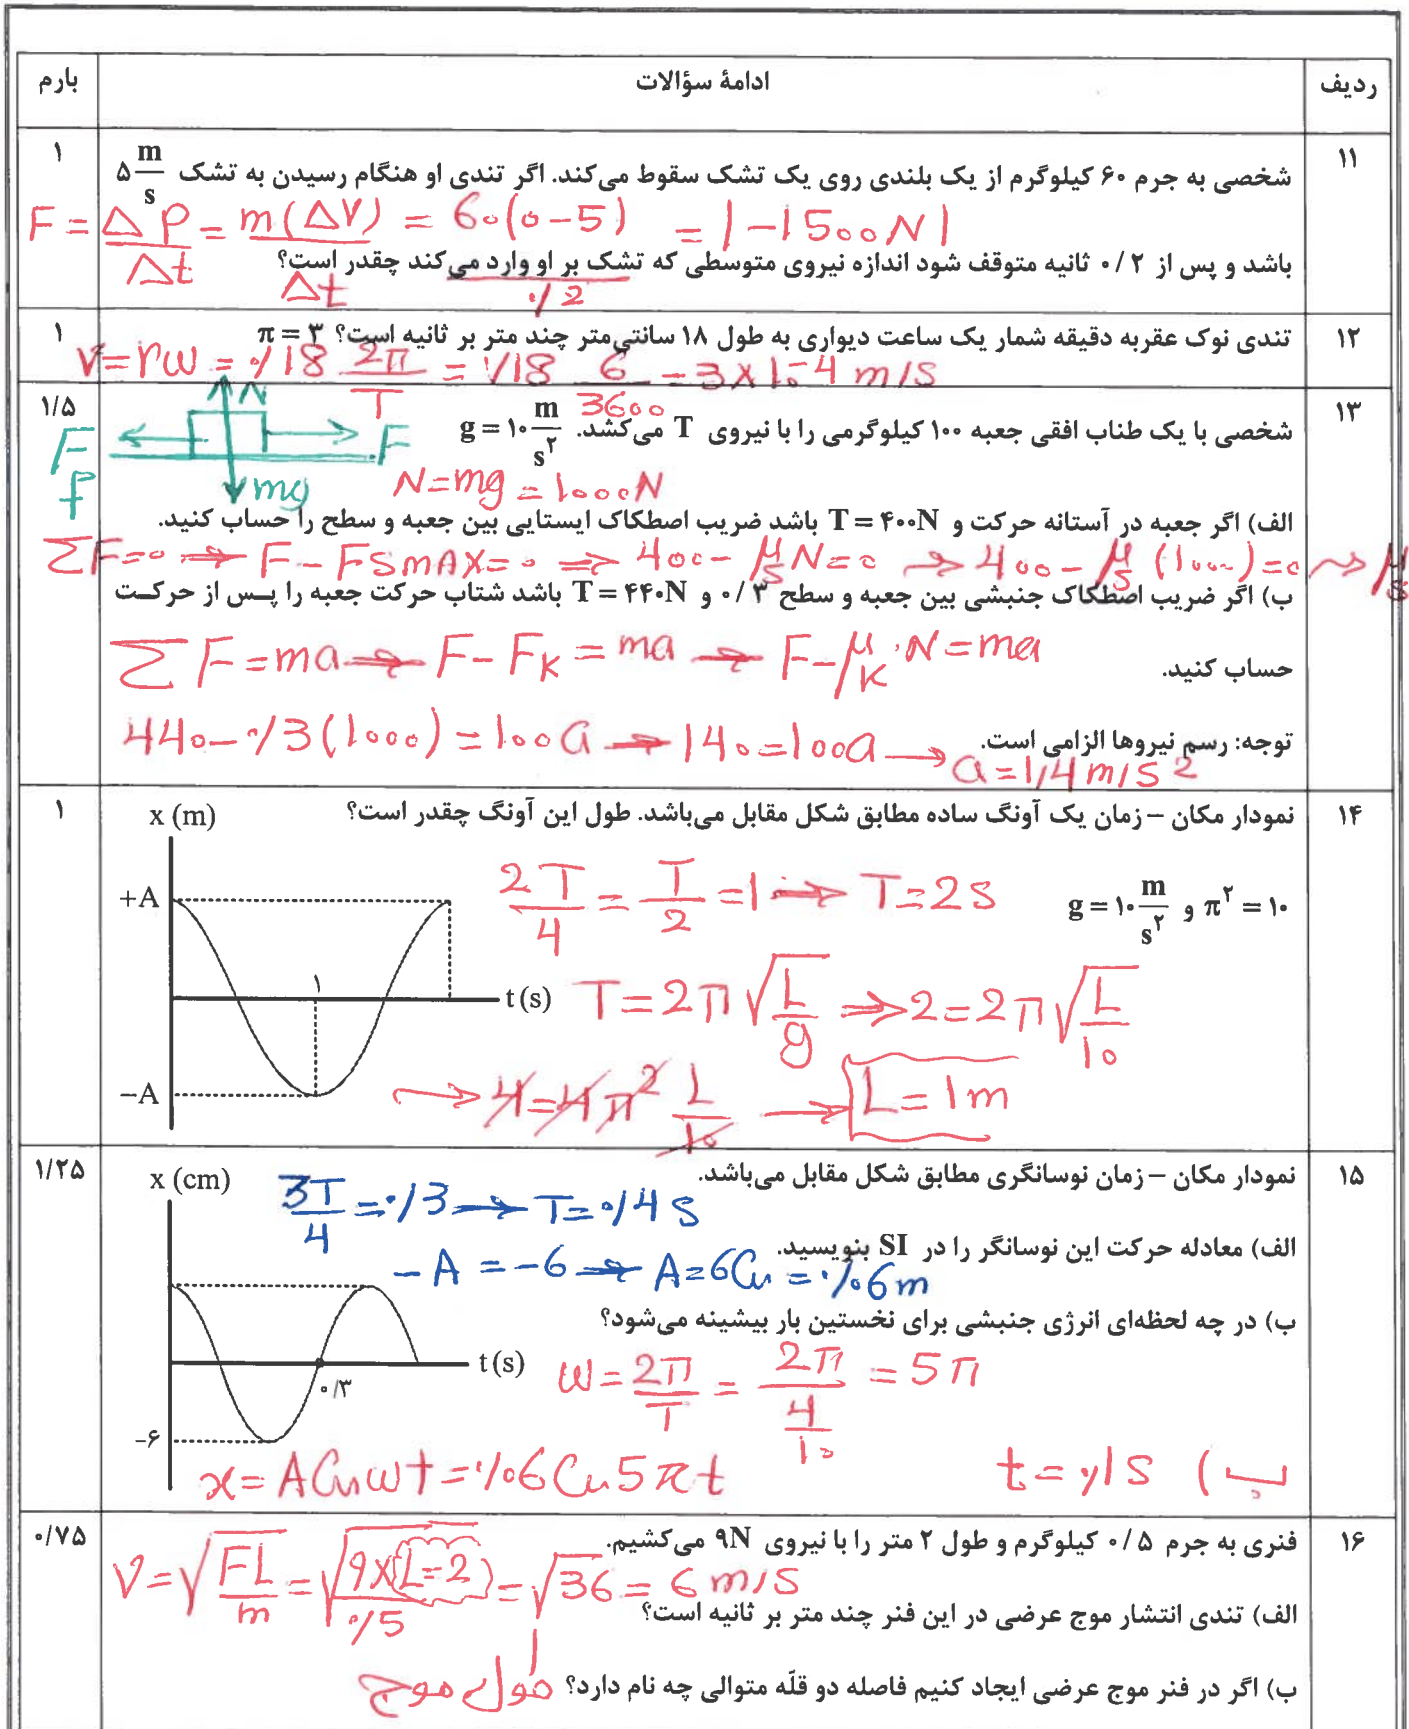 ردیف	ادامهٔ سؤالات	بارم
۱۱	شخصی به جرم ۶۰ کیلوگرم از یک بلندی روی یک تشک سقوط می‌کند. اگر تندی او هنگام رسیدن به تشک ۵ m/s	۱
F = ΔP/Δt = m(ΔV)/Δt = 60(0-5)/0/2 = |-1500N|
باشد و پس از ۰/۲ ثانیه متوقف شود اندازه نیروی متوسطی که تشک بر او وارد می‌کند چقدر است؟
۱۲	تندی نوک عقربه دقیقه شمار یک ساعت دیواری به طول ۱۸ سانتی‌متر چند متر بر ثانیه است؟ π = ۳	۱
V = rω = 0/18 2π/T = 0/18 6/3600 = 3×10-4 m/s
۱۳	شخصی با یک طناب افقی جعبه ۱۰۰ کیلوگرمی را با نیروی T می‌کشد. g = ۱۰ m/s۲	۱/۵
N
F
F f
mg
N = mg = 1000N
الف) اگر جعبه در آستانه حرکت و T = ۴۰۰N باشد ضریب اصطکاک ایستایی بین جعبه و سطح را حساب کنید.
ΣF=0 → F - FSMAX=0 ⇒ 400 - μs N=0 → 400 - μs (1000)=0 → μs
ب) اگر ضریب اصطکاک جنبشی بین جعبه و سطح ۰/۳ و T = ۴۴۰N باشد شتاب حرکت جعبه را پس از حرکت
ΣF = ma → F - FK = ma → F - μK.N = ma
حساب کنید.
440 - 0/3(1000) = 100a → 140 = 100a → a = 1/4 m/s2
توجه: رسم نیروها الزامی است.
۱۴	نمودار مکان – زمان یک آونگ ساده مطابق شکل مقابل می‌باشد. طول این آونگ چقدر است؟	۱
g = ۱۰ m/s۲ و π۲ = ۱۰
x (m)
+A
۱
t (s)
−A
2T/4 = T/2 = 1 → T = 2S
T = 2π√L/g ⇒ 2 = 2π√L/10
→ 4 = 4π2 L/10 → L = 1m
۱۵	نمودار مکان – زمان نوسانگری مطابق شکل مقابل می‌باشد.	۱/۲۵
3T/4 = 0/3 → T = 0/4 S
الف) معادله حرکت این نوسانگر را در SI بنویسید.
-A = -6 → A = 6Cm = 0/06m
ب) در چه لحظه‌ای انرژی جنبشی برای نخستین بار بیشینه می‌شود؟
x (cm)
t (s)
۰/۳
−۶
ω = 2π/T = 2π/4/10 = 5π
x = A Cos ωt = 0/06 Cos 5πt
ب) t = 0/1 S
۱۶	فنری به جرم ۰/۵ کیلوگرم و طول ۲ متر را با نیروی ۹N می‌کشیم.	۰/۷۵
V = √FL/m = √9×(L=2)/0/5 = √36 = 6 m/s
الف) تندی انتشار موج عرضی در این فنر چند متر بر ثانیه است؟
ب) اگر در فنر موج عرضی ایجاد کنیم فاصله دو قلّه متوالی چه نام دارد؟ طول موج